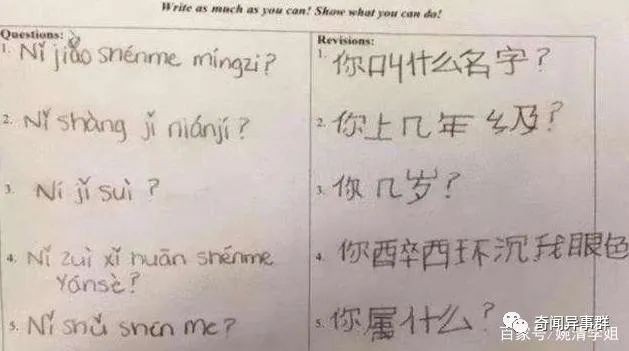 Write as much as you can! Show what you can do!
Questions:
Revisions:
1. Nǐ jiǎo shénme míngzi?
1. 你叫什么名字?
2. Nǐ shàng jǐ niánjí?
2. 你上几年级?
3. Ní jǐ suì ?
3. 你几岁?
4. Nǐ zuì xǐ huān shénme
Yánsè?
4. 你醉西环沉我眼色
5. Nǐ shǔ shen me?
5. 你属什么?
奇闻异事群
百家号/婉清学姐